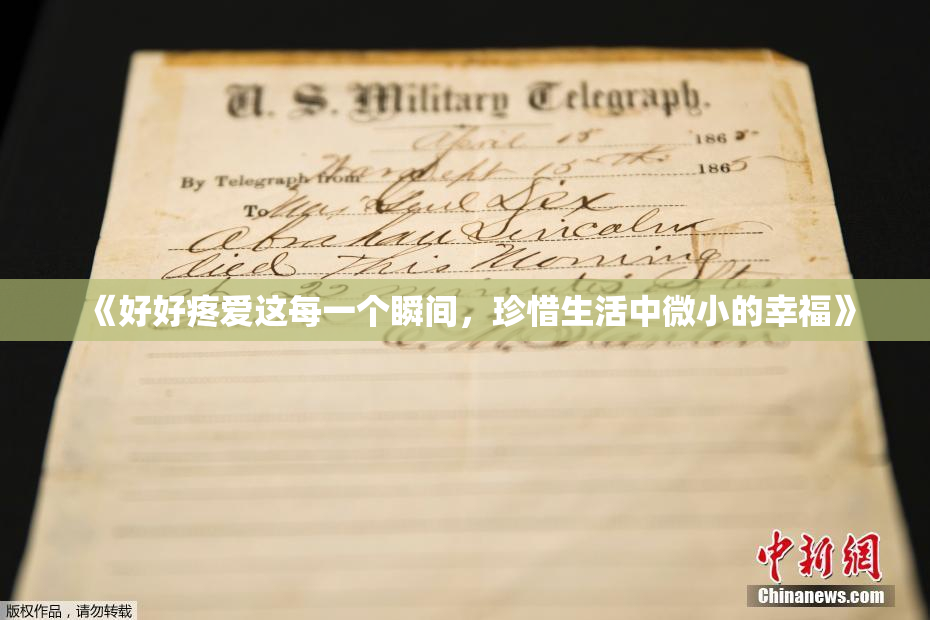 U. S. Military Telegraph.
April 15 1865
By Telegraph from War Dept 15th 1865
To Maj Genl Dix
Abraham Lincoln
died This Morning
at 22 minutes after
《好好疼爱这每一个瞬间，珍惜生活中微小的幸福》
E. M. Stanton
中新网
Chinanews.com
版权作品，请勿转载